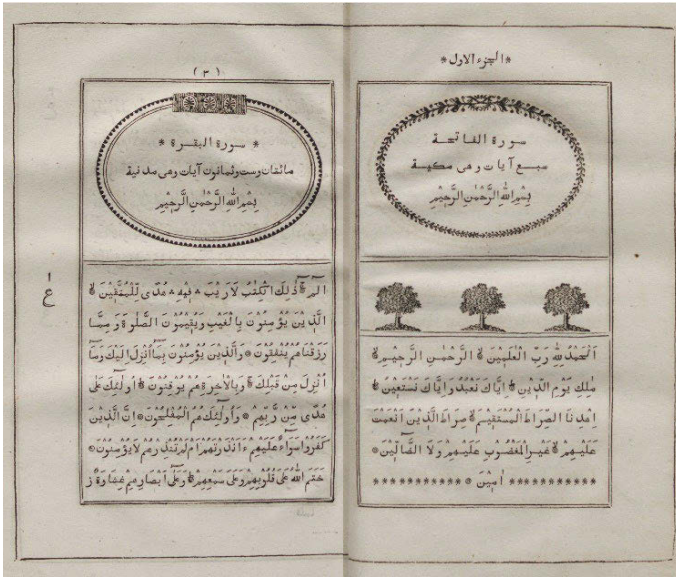 *الجزء الاول*
سورة الفاتحة
سبع آيات وهى مكية
بِسْمِ اللهِ الرَّحْمٰنِ الرَّحِيْمِ
اَلْحَمْدُ لِلّٰهِ رَبِّ الْعٰلَمِيْنَ ۙ الرَّحْمٰنِ الرَّحِيْمِ ۙ
مٰلِكِ يَوْمِ الدِّيْنِ ۙ اِيَّاكَ نَعْبُدُ وَاِيَّاكَ نَسْتَعِيْنُ ۙ
اِهْدِنَا الصِّرَاطَ الْمُسْتَقِيْمَ ۙ صِرَاطَ الَّذِيْنَ اَنْعَمْتَ
عَلَيْهِمْ ۙ غَيْرِ الْمَغْضُوْبِ عَلَيْهِمْ وَلَا الضَّآلِّيْنَ *
*********** اٰمِيْنَ ***********
(٣)
* سورة البقرة *
مائتان وست وثمانون آيات وهى مدنية
بِسْمِ اللهِ الرَّحْمٰنِ الرَّحِيْمِ
الٓمّٓ ۚ ذٰلِكَ الْكِتٰبُ لَا رَيْبَ ۛ فِيْهِ ۛ هُدًى لِّلْمُتَّقِيْنَ ۙ
الَّذِيْنَ يُؤْمِنُوْنَ بِالْغَيْبِ وَيُقِيْمُوْنَ الصَّلٰوةَ وَمِمَّا
رَزَقْنَاهُمْ يُنْفِقُوْنَ * وَالَّذِيْنَ يُؤْمِنُوْنَ بِمَآ اُنْزِلَ اِلَيْكَ وَمَآ
اُنْزِلَ مِنْ قَبْلِكَ ۚ وَبِالْاٰخِرَةِ هُمْ يُوْقِنُوْنَ * اُولٰٓئِكَ عَلٰى
هُدًى مِّنْ رَّبِّهِمْ * وَاُولٰٓئِكَ هُمُ الْمُفْلِحُوْنَ * اِنَّ الَّذِيْنَ
كَفَرُوْا سَوَآءٌ عَلَيْهِمْ ءَاَنْذَرْتَهُمْ اَمْ لَمْ تُنْذِرْهُمْ لَا يُؤْمِنُوْنَ *
خَتَمَ اللهُ عَلٰى قُلُوْبِهِمْ وَعَلٰى سَمْعِهِمْ ۚ وَعَلٰٓى اَبْصَارِهِمْ غِشَاوَةٌ ز
ع